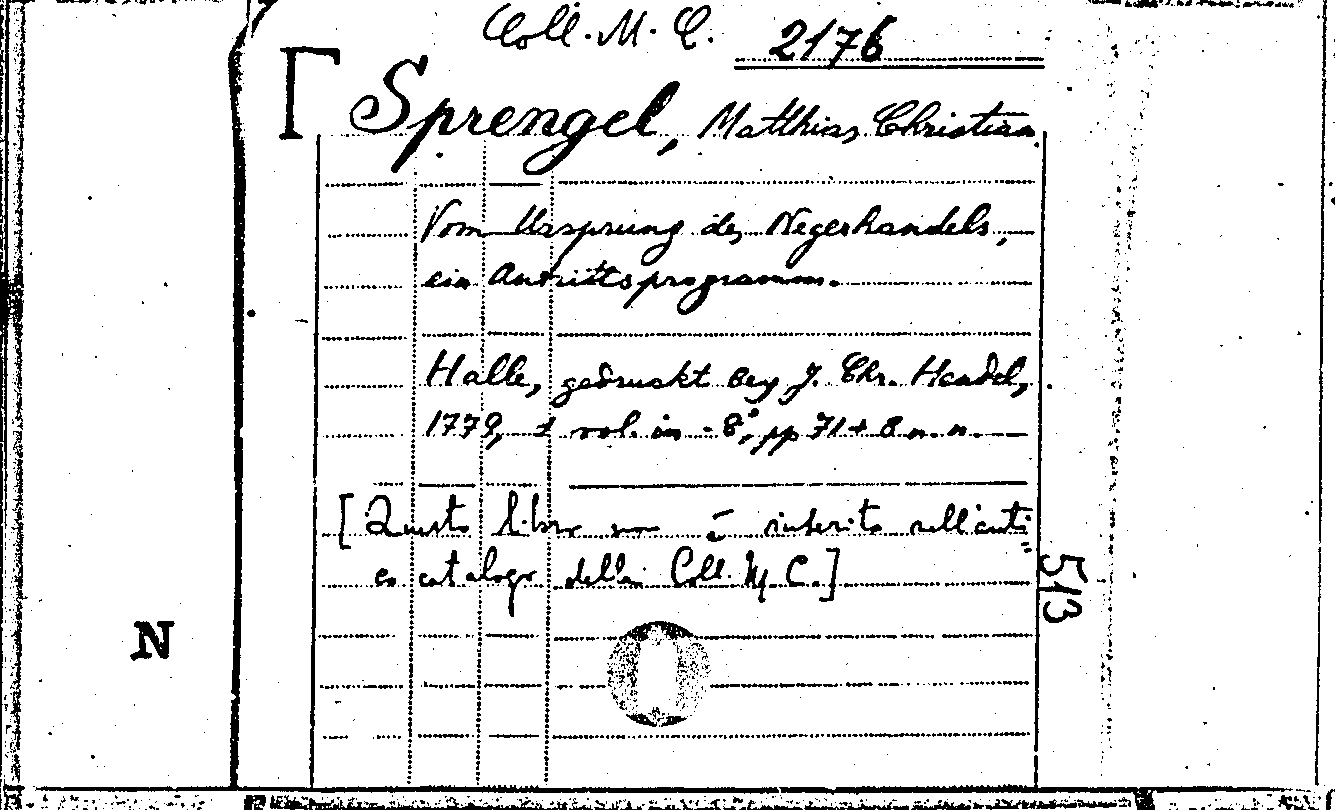 Coll. M. C. 2176
Sprengel, Matthias Christian
Vom Ursprung des Negerhandels,
ein Antrittsprogramm.
Halle, gedruckt bey J. Chr. Hendel,
1779, 1 vol. in-8°, pp 71+8 n. n.
[Questo libro non è inserito nell'anti=
co catalogo della Coll. M. C.]
513
N